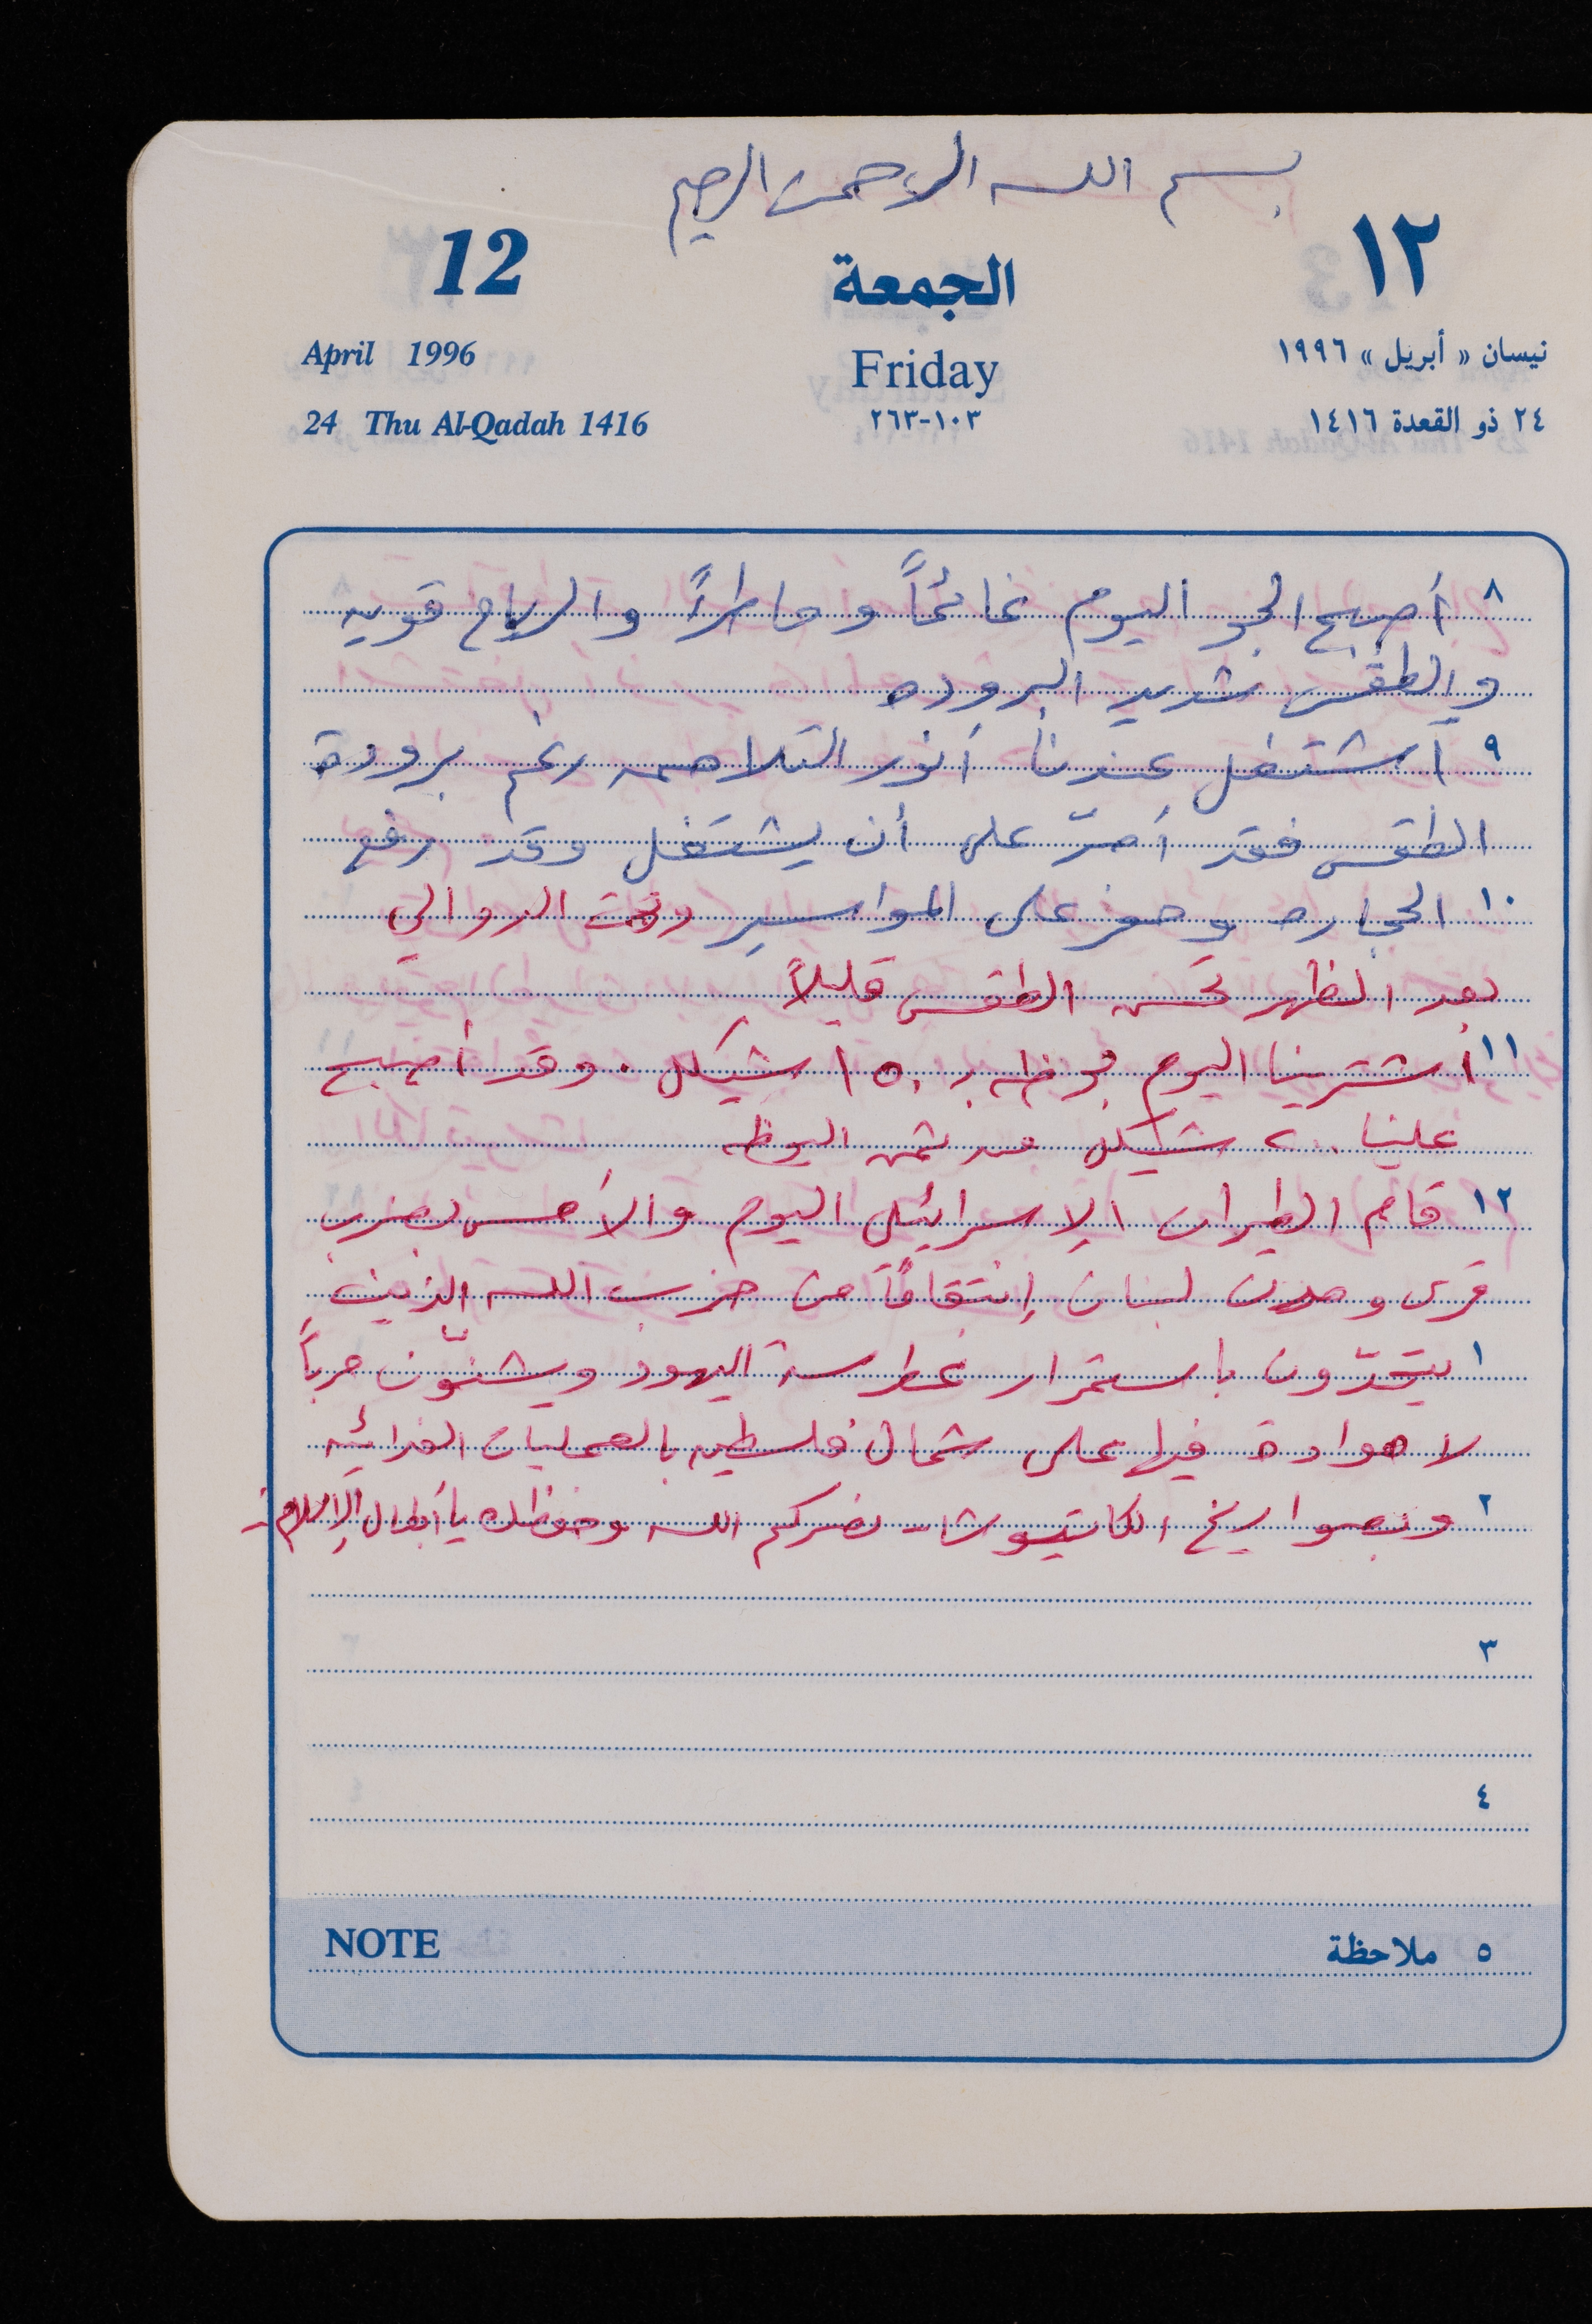 بسم الله الرحمن الرحيم
12 الجمعة ١٢
April 1996 Friday نيسان « أبريل » ١٩٩٦
24 Thu Al-Qadah 1416 ٢٦٣-١٠٣ ٢٤ ذو القعدة ١٤١٦
٨ أصبح الجو اليوم غائماً وماطراً والرياح قويه
والطقس شديد البروده
٩ اشتغل عندنا أنور التلاحمه رغم برودة
الطقس فقد أصرّ على أن يشتغل وقد رفع
١٠ الحجاره وحفر على المواسير وتحت الدوالي
بعد الظهر تحسن الطقس قليلاً
١١ اشترينا اليوم بـ ١٥٠ شيكل . وقد أصبح
علينا ٢٠٠ شيكل من ثمن
١٢ قام الطيران الإسرائيلي اليوم والأمس بضرب
قرى ومدن لبنان إنتقاماً من حزب الله الذين
١ يتحدّون باستمرار غطرسة اليهود ويشنّون حرباً
لا هوادة فيها على شمال فلسطين بالعمليات الفدائيه
٢ وبصواريخ الكاتيوشا - نصركم الله وحفظكم يا أبطال الإسلام
٣
٤
NOTE ٥ ملاحظة